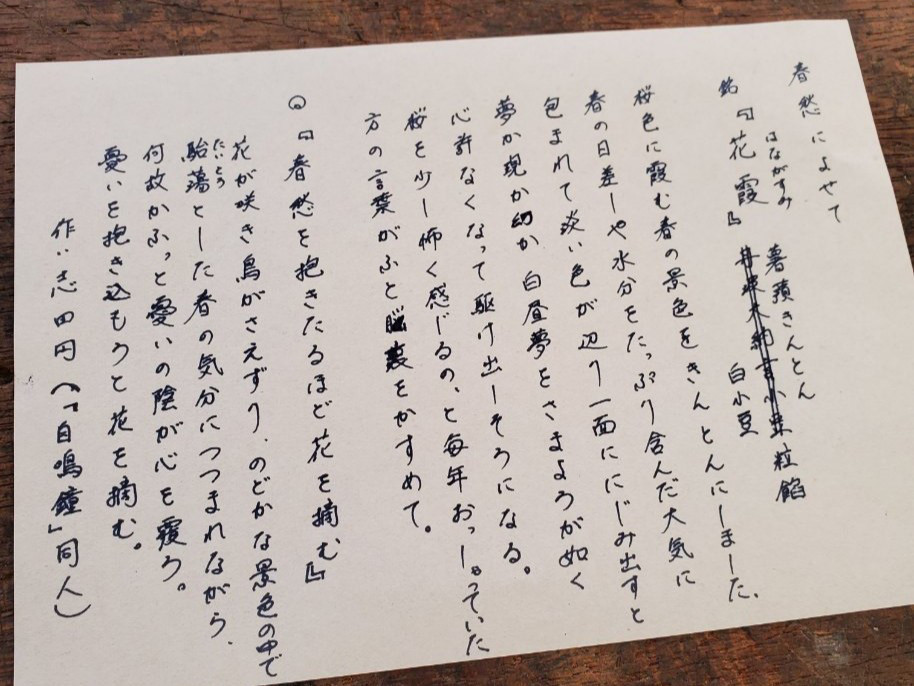 春愁によせて
銘『花霞』 薯蕷きんとん
はながすみ
白小豆粒餡
桜色に霞む春の景色をきんとんにしました。
春の日差しや水分をたっぷり含んだ大気に
包まれて淡い色が辺り一面ににじみ出すと
夢か現か幻か 白昼夢をさまようが如く
心許なくなって駆け出しそうになる。
桜を少し怖く感じるの、と毎年おっしゃっていた
方の言葉がふと脳裏をかすめて。
◎『春愁を抱きたるほど花を摘む』
花が咲き鳥がさえずり、のどかな景色の中で
たいとう
駘蕩とした春の気分につつまれながら、
何故かふっと憂いの陰が心を覆う。
憂いを抱き込もうと花を摘む。
作:志田円(「自鳴鐘」同人)